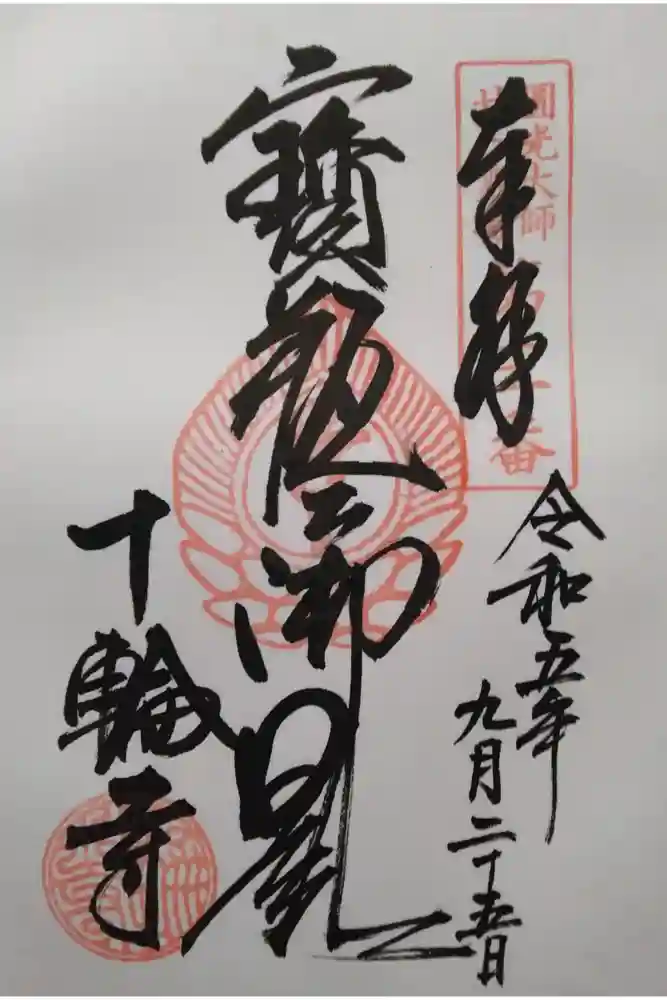 奉拝
圓光大師
番
令和五年
九月二十五日
寶瓶御影
十輪寺